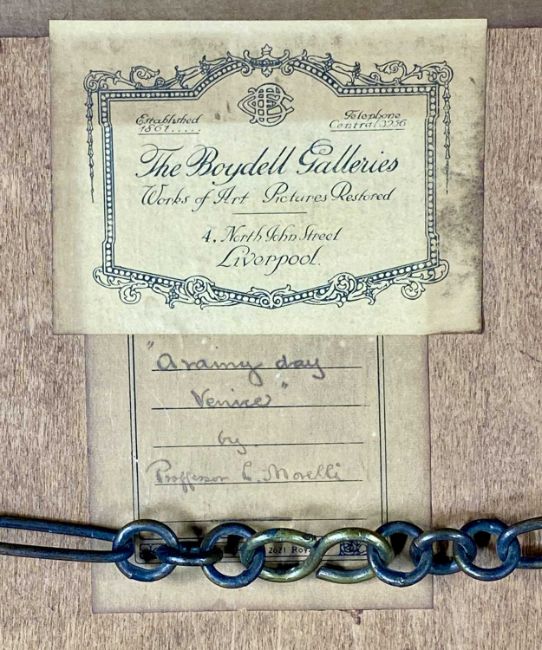 Established
1861.....
Telephone
Central 3256
The Boydell Galleries
Works of Art Pictures Restored
4, North John Street
Liverpool.
"A rainy day
Venice"
by
Professor L. Morelli
2621